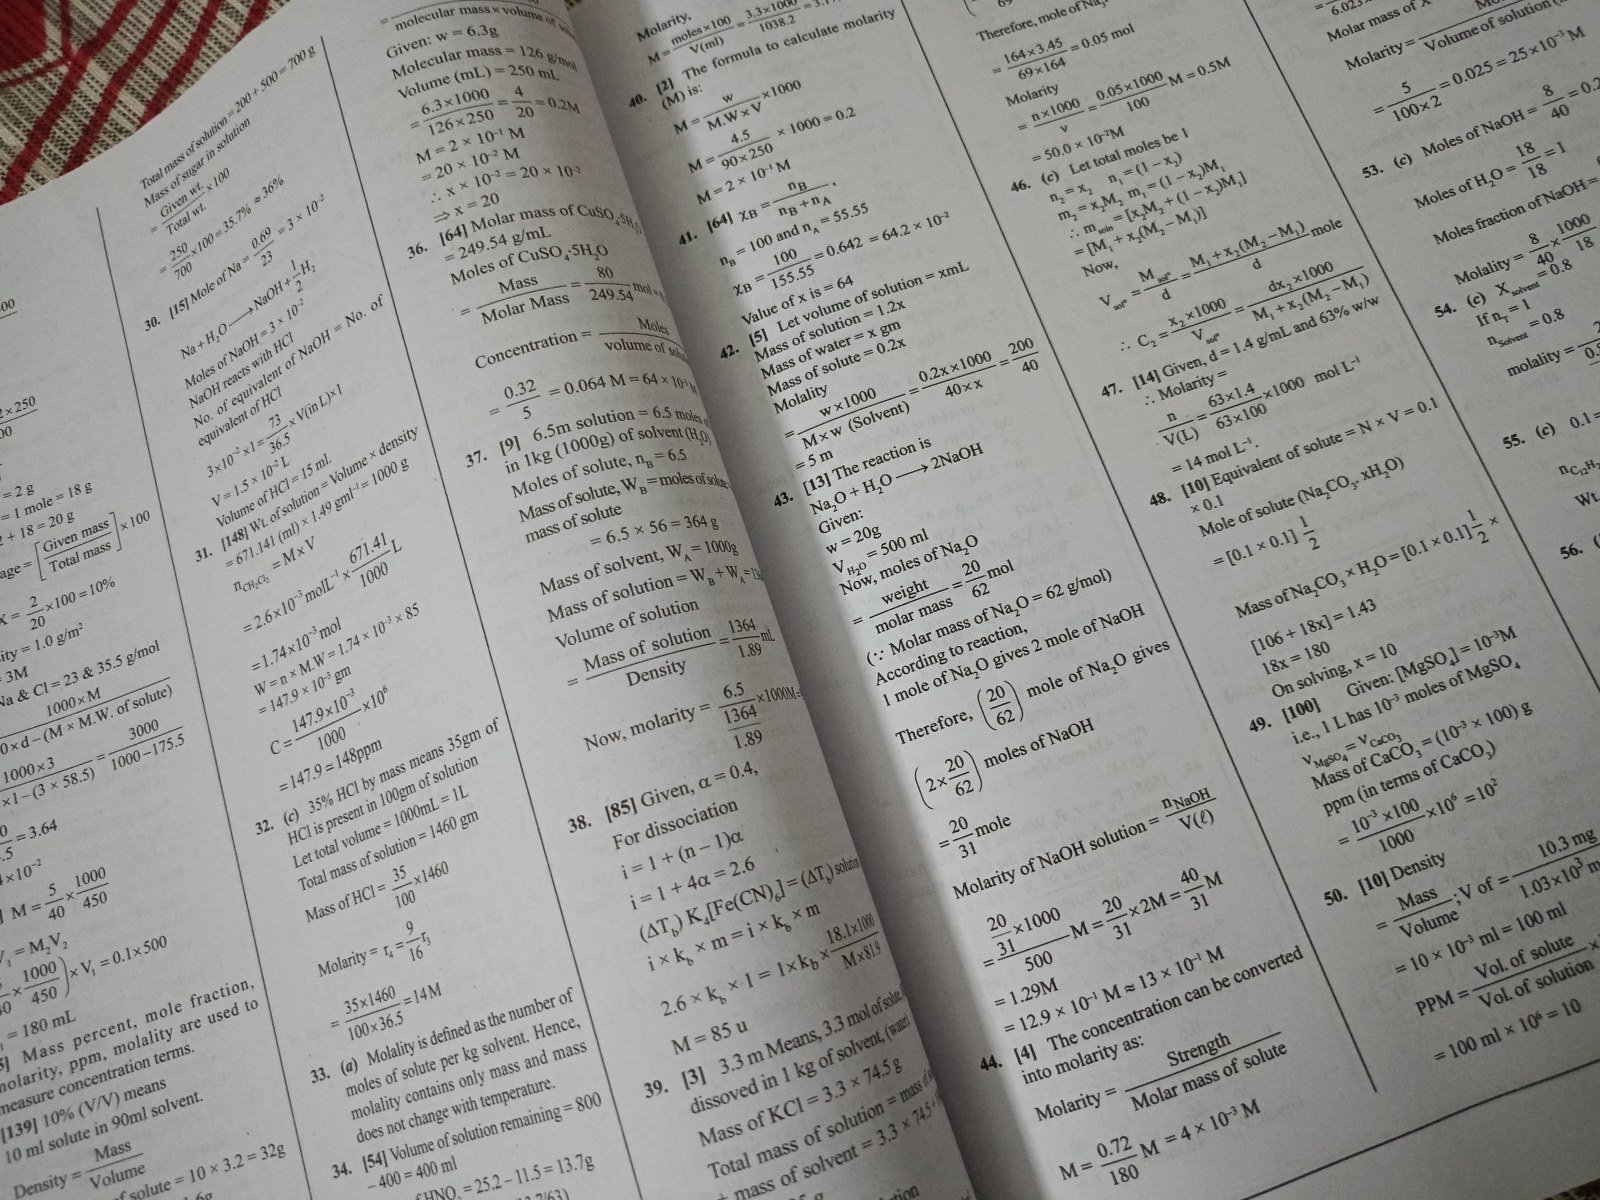 2×250
= 2 g
= 1 mole = 18 g
2 + 18 = 20 g
age = [Given mass / Total mass] × 100
X = 2/20 × 100 = 10%
ity = 1.0 g/m²
= 3M
Na & Cl = 23 & 35.5 g/mol
1000 × M
0 × d – (M × M.W. of solute)
1000×3 / ×1 – (3 × 58.5) = 3000 / 1000–175.5
= 3.64
×10⁻²
M = 5/40 × 1000/450
V₁ = M₂V₂
× 1000/450) × V₁ = 0.1×500
= 180 mL
Mass percent, mole fraction,
molarity, ppm, molality are used to
measure concentration terms.
[139] 10% (V/V) means
10 ml solute in 90ml solvent.
Density = Mass / Volume
of solute = 10 × 3.2 = 32g
Total mass of solution = 200 + 500 = 700 g
Mass of sugar in solution
= Given wt. / Total wt. × 100
= 250/700 × 100 = 35.7% ≈ 36%
30. [15] Mole of Na = 0.69/23 = 3 × 10⁻²
Na + H₂O ⟶ NaOH + 1/2 H₂
Moles of NaOH = 3 × 10⁻²
NaOH reacts with HCl
No. of equivalent of NaOH = No. of
equivalent of HCl
3×10⁻² ×1 = 73/36.5 × V(in L)×1
V = 1.5 × 10⁻² L
Volume of HCl = 15 ml.
31. [148] Wt. of solution = Volume × density
= 671.141 (ml) × 1.49 gml⁻¹ = 1000 g
n_CH₂Cl₂ = M × V
= 2.6×10⁻³ molL⁻¹ × 671.41/1000 L
= 1.74×10⁻³ mol
W = n × M.W = 1.74 × 10⁻³ × 85
= 147.9 × 10⁻³ gm
C = 147.9×10⁻³ / 1000 × 10⁶
= 147.9 ≃ 148ppm
32. (c) 35% HCl by mass means 35gm of
HCl is present in 100gm of solution
Let total volume = 1000mL = 1L
Total mass of solution = 1460 gm
Mass of HCl = 35/100 × 1460
Molarity = r₄ = 9/16 r₃
= 35×1460 / 100×36.5 = 14M
33. (a) Molality is defined as the number of
moles of solute per kg solvent. Hence,
molality contains only mass and mass
does not change with temperature.
34. [54] Volume of solution remaining = 800
– 400 = 400 ml
HNO₃ = 25.2 – 11.5 = 13.7g
molecular mass × volume of
Given: w = 6.3g
Molecular mass = 126 g/mol
Volume (mL) = 250 mL
= 6.3×1000 / 126×250 = 4/20 = 0.2M
M = 2 × 10⁻¹ M
= 20 × 10⁻² M
∴ x × 10⁻² = 20 × 10⁻²
⇒ x = 20
36. [64] Molar mass of CuSO₄·5H₂O
= 249.54 g/mL
Moles of CuSO₄·5H₂O
= Mass / Molar Mass = 80/249.54 mol
Concentration = Moles / volume of
= 0.32/5 = 0.064 M = 64 × 10⁻³ M
37. [9] 6.5m solution = 6.5 moles of
in 1kg (1000g) of solvent (H₂O)
Moles of solute, n_B = 6.5
Mass of solute, W_B = moles of solute
mass of solute
= 6.5 × 56 = 364 g
Mass of solvent, W_A = 1000g
Mass of solution = W_B + W_A =
Volume of solution
= Mass of solution / Density = 1364/1.89 mL
Now, molarity = 6.5 / (1364/1.89) × 1000M
38. [85] Given, α = 0.4,
For dissociation
i = 1 + (n – 1)α
i = 1 + 4α = 2.6
(ΔT_b) K₄[Fe(CN)₆] = (ΔT_b) solution
i × k_b × m = i × k_b × m
2.6 × k_b × 1 = 1 × k_b × 18.1×1000 / M×81.9
M = 85 u
39. [3] 3.3 m Means, 3.3 mol of solute,
dissoved in 1 kg of solvent, (water)
Mass of KCl = 3.3 × 74.5 g
Total mass of solution = mass of
+ mass of solvent = 3.3 × 74.5 +
Molarity,
M = moles×100 / V(ml) = 3.3×1000 / 1038.2
40. [2] The formula to calculate molarity
(M) is:
M = w / M.W × V × 1000
M = 4.5 / 90×250 × 1000 = 0.2
M = 2 × 10⁻¹ M
41. [64] χ_B = n_B / n_B + n_A,
n_B = 100 and n_A = 55.55
χ_B = 100/155.55 = 0.642 = 64.2 × 10⁻²
Value of x is = 64
42. [5] Let volume of solution = xmL
Mass of solution = 1.2x
Mass of water = x gm
Mass of solute = 0.2x
Molality
= w×1000 / M×w (Solvent) = 0.2x×1000 / 40×x = 200/40
= 5 m
43. [13] The reaction is
Na₂O + H₂O ⟶ 2NaOH
Given:
w = 20g
V_H₂O = 500 ml
Now, moles of Na₂O
= weight / molar mass = 20/62 mol
(∵ Molar mass of Na₂O = 62 g/mol)
According to reaction,
1 mole of Na₂O gives 2 mole of NaOH
Therefore, (20/62) mole of Na₂O gives
(2×20/62) moles of NaOH
= 20/31 mole
Molarity of NaOH solution = n_NaOH / V(ℓ)
= (20/31 × 1000) / 500 M = 20/31 × 2M = 40/31 M
= 1.29M
= 12.9 × 10⁻¹ M ≈ 13 × 10⁻¹ M
44. [4] The concentration can be converted
into molarity as:
Molarity = Strength / Molar mass of solute
M = 0.72/180 M = 4 × 10⁻³ M
Therefore, mole of
= 164×3.45 / 69×164 = 0.05 mol
Molarity
= n×1000 / v = 0.05×1000 / 100 M = 0.5M
= 50.0 × 10⁻²M
46. (c) Let total moles be 1
n₂ = x₂ n₁ = (1 – x₂)
m₂ = x₂M₂ m₁ = (1 – x₂)M₁
∴ m_soln = [x₂M₂ + (1 – x₂)M₁]
= [M₁ + x₂(M₂ – M₁)]
Now,
V_solⁿ = M_solⁿ / d = M₁ + x₂(M₂ – M₁) / d mole
∴ C₂ = x₂×1000 / V_solⁿ = dx₂×1000 / M₁ + x₂(M₂ – M₁)
47. [14] Given, d = 1.4 g/mL and 63% w/w
∴ Molarity =
n / V(L) = 63×1.4 / 63×100 × 1000 mol L⁻¹
= 14 mol L⁻¹.
48. [10] Equivalent of solute = N × V = 0.1
× 0.1
Mole of solute (Na₂CO₃. xH₂O)
= [0.1 × 0.1] 1/2
Mass of Na₂CO₃ × H₂O = [0.1 × 0.1] 1/2 ×
[106 + 18x] = 1.43
18x = 180
On solving, x = 10
49. [100] Given: [MgSO₄] = 10⁻³M
i.e., 1 L has 10⁻³ moles of MgSO₄
V_MgSO₄ = V_CaCO₃
Mass of CaCO₃ = (10⁻³ × 100) g
ppm (in terms of CaCO₃)
= 10⁻³ ×100 / 1000 × 10⁶ = 10²
50. [10] Density
= Mass / Volume ; V of = 10.3 mg / 1.03×10³
= 10 × 10⁻³ ml = 100 ml
PPM = Vol. of solute / Vol. of solution ×
= 100 ml × 10⁶ = 10
Molar mass of X
Molarity = / Volume of solution
= 5 / 100×2 = 0.025 = 25×10⁻³ M
53. (c) Moles of NaOH = 8/40 =
Moles of H₂O = 18/18 = 1
Moles fraction of NaOH =
Molality = 8/40 × 1000/18
= 0.8
54. (c) X_solvent
If n_T = 1
n_Solvent = 0.8
molality =
55. (c) 0.1 =
Wt.
56.